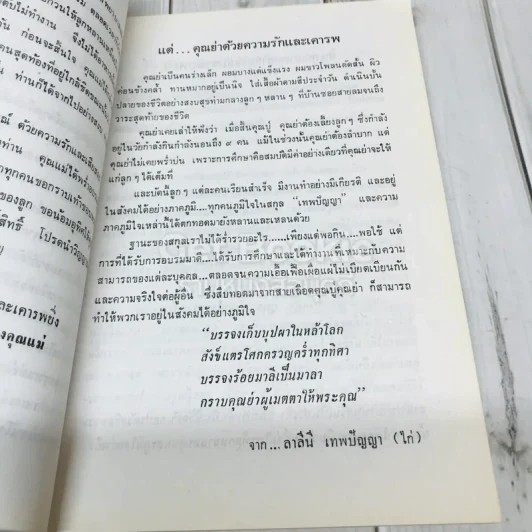 ดับไม่ทำงาน จึงไม่ได้
ท่าน ก่อนจะสิ้นใจ
คนสุดท้องที่อยู่ใกล้ชิด
ท่าน ก็ได้จากไปอย่างสงบ
ด้วยความรักและ
คุณแม่ได้
ทุกคนขอกราบเท้า
ของลูก ขอน้อมอุทิศ
สิทธิ์ โปรดนำ
และเคารพยิ่ง
คุณแม่
แด่...คุณย่าด้วยความรักและเคารพ
คุณย่าเป็นคนร่างเล็ก ผอมบางแต่แข็งแรง ผมขาวโพลนดัดสั้น ผิว
ค่อนข้างคล้ำ ทานหมากอยู่เป็นนิจ ใส่เสื้อผ้าตามสีประจำวัน ดำเนินบั้น
ปลายของชีวิตอย่างสงบสุขท่ามกลางลูก ๆ หลาน ๆ ที่บ้านซอยสายลมจนถึง
วาระสุดท้ายของชีวิต
คุณย่าเคยเล่าให้ฟังว่า เมื่อสิ้นคุณปู่ คุณย่าต้องเลี้ยงลูก ๆ ซึ่งกำลัง
อยู่ในวัยกำลังกินกำลังนอนถึง ๙ คน แม้ในช่วงนั้นคุณย่าต้องลำบาก แต่
คุณย่าไม่เคยพร่ำบ่น เพราะการศึกษาคือสมบัติมีค่าอย่างเดียวที่คุณย่าจะให้
แก่ลูก ๆ ได้เต็มที่
และบัดนี้ลูก ๆ แต่ละคนเรียนสำเร็จ มีงานทำอย่างมีเกียรติ และอยู่
ในสังคมได้อย่างภาคภูมิ....ทุกคนภูมิใจในสกุล "เทพปัญญา" และความ
ภาคภูมิใจเหล่านี้ได้ตกทอดมายังหลานและเหลนด้วย
ฐานะของสกุลเราไม่ได้ร่ำรวยอะไร....เพียงแต่พอกิน....พอใช้ แต่
การที่ได้รับการอบรมมาดี....ได้รับการศึกษาและได้ทำงานที่เหมาะกับความ
สามารถของแต่ละบุคคล...ตลอดจนความเอื้อเฟื้อเผื่อแผ่ไม่เบียดเบียนกัน
และความจริงใจต่อผู้อื่น ซึ่งสืบทอดมาจากสายเลือดคุณปู่คุณย่า ก็สามารถ
ทำให้พวกเราอยู่ในสังคมได้อย่างภูมิใจ
"บรรจงเก็บบุปผาในหล้าโลก
สังข์แตรโศกครวญคร่ำทุกทิศา
บรรจงร้อยมาลีเป็นมาลา
กราบคุณย่าผู้เมตตาให้พระคุณ"
จาก ... ลาลินี เทพปัญญา (ไก่)